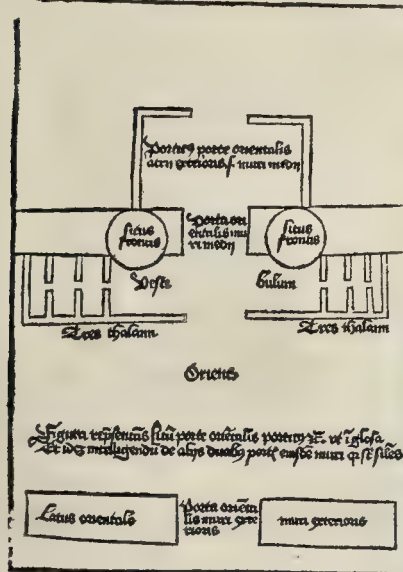 Porticus porte orientalis
atrii exterioris .s. muri medii
situs
frontis
Porta ori
entalis mu
ri medii
situs
frontis
Vesti
bulum
Tres thalami
Tres thalami
Oriens
Figura representans situm porte orientalis porticus ut i glosa
Et idem intelligendum de aliis duabus portis eiusdem muri
Latus orientale
Porta orien
talis muri exte
rioris
muri exterioris